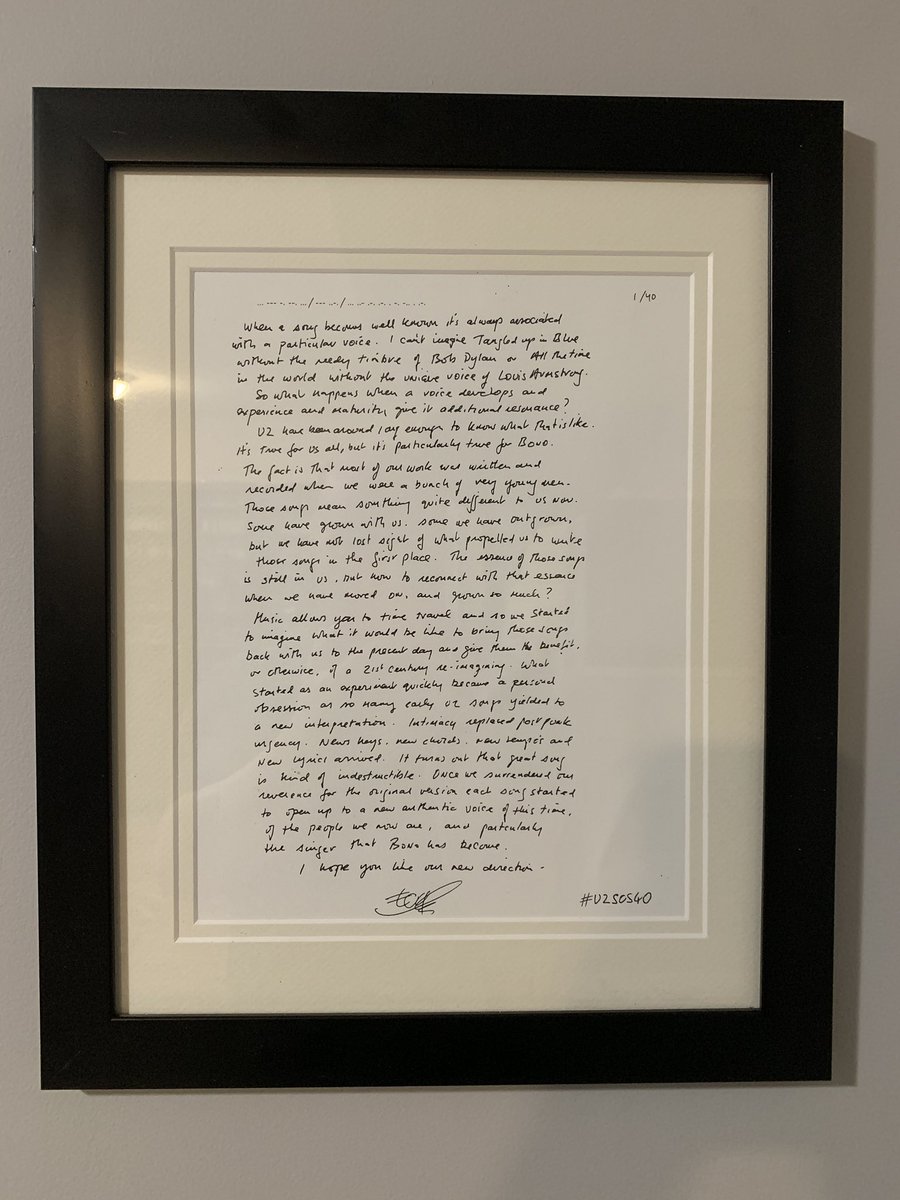 ... --- -. --. .../--- ..-./... ..- .-. .-. . -. -.. . .-.
1/40
When a song becomes well known it's always associated
with a particular voice. I can't imagine Tangled up in Blue
without the reedy timbre of Bob Dylan or All the time
in the world without the unique voice of Louis Armstrong.
So what happens when a voice develops and
experience and maturity give it additional resonance?
U2 have been around long enough to know what that is like.
It's true for us all, but it's particularly true for Bono.
The fact is that most of our work was written and
recorded when we were a bunch of very young men.
Those songs mean something quite different to us now.
Some have grown with us. Some we have outgrown,
but we have not lost sight of what propelled us to write
those songs in the first place. The essence of those songs
is still in us, but how to reconnect with that essence
when we have moved on, and grown so much?
Music allows you to time travel and so we started
to imagine what it would be like to bring these songs
back with us to the present day and give them the benefit,
or otherwise, of a 21st century re-imagining. What
started as an experiment quickly became a personal
obsession as so many early U2 songs yielded to
a new interpretation. Intimacy replaced post punk
urgency. News keys, new chords, new tempos and
new lyrics arrived. It turns out that great song
is kind of indestructible. Once we surrendered our
reverence for the original version each song started
to open up to a new authentic voice of this time,
of the people we now are, and particularly
the singer that Bono has become.
I hope you like our new direction.
#U2SOS40